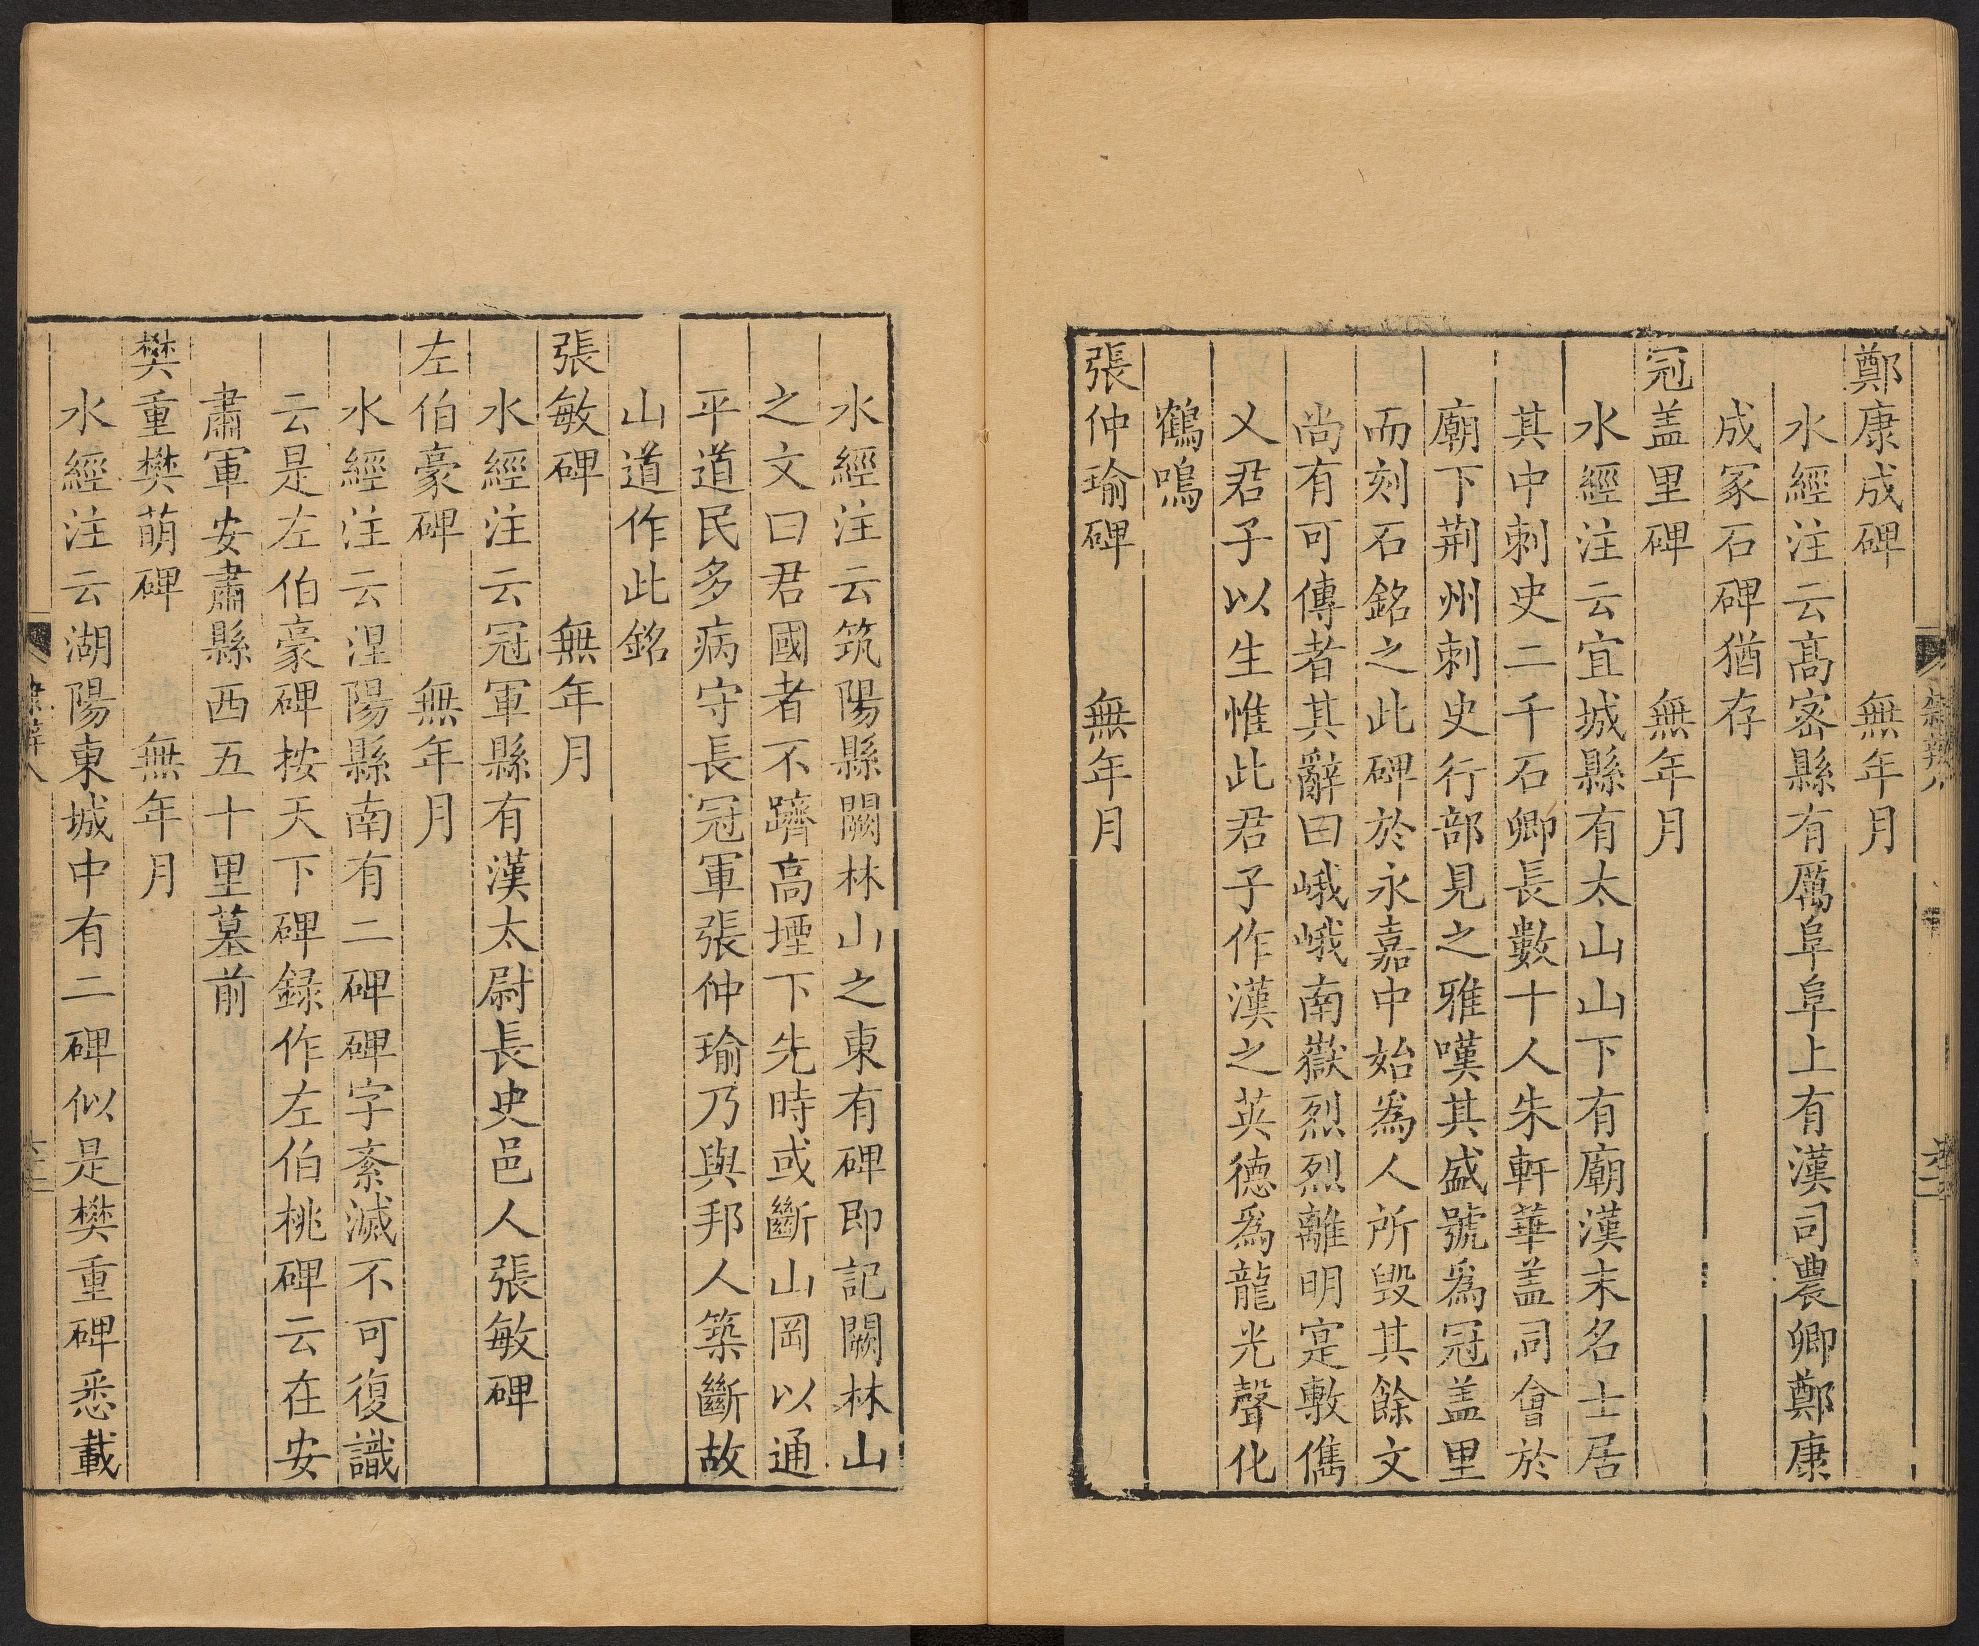 鄭康成碑　　無年月
水經注云高密縣有厲阜阜上有漢司農卿鄭康
成冢石碑猶存
冠盖里碑　　無年月
水經注云宜城縣有太山山下有廟漢末名士居
其中刺史二千石卿長數十人朱軒華盖同會於
廟下荆州刺史行部見之雅嘆其盛號爲冠盖里
而刻石銘之此碑於永嘉中始爲人所毁其餘文
尚有可傳者其辭曰峨峨南嶽烈烈離明寔敷儁
乂君子以生惟此君子作漢之英德爲龍光聲化
鶴鳴
張仲瑜碑　　無年月
水經注云筑陽縣闕林山之東有碑即記闕林山
之文曰君國者不躋高堙下先時或斷山岡以通
平道民多病守長冠軍張仲瑜乃與邦人築斷故
山道作此銘
張敏碑　　無年月
水經注云冠軍縣有漢太尉長史邑人張敏碑
左伯豪碑　　無年月
水經注云涅陽縣南有二碑碑字紊滅不可復識
云是左伯豪碑按天下碑録作左伯桃碑云在安
肅軍安肅縣西五十里墓前
樊重樊萌碑　　無年月
水經注云湖陽東城中有二碑似是樊重碑悉載